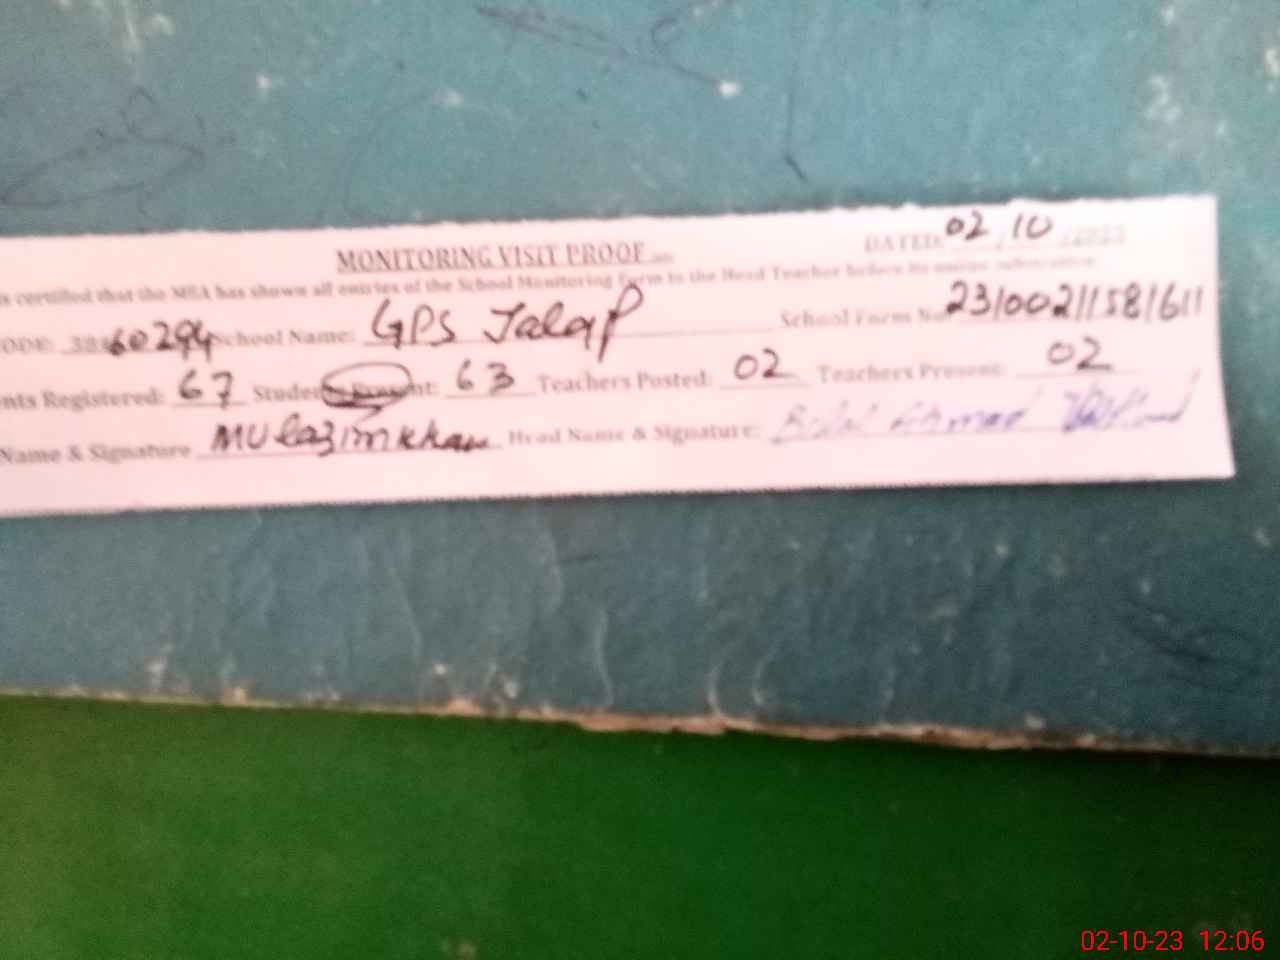 MONITORING VISIT PROOF DATED: 02/10/2023
s certified that the MEA has shown all entries of the School Monitoring Form to the Head Teacher before its online submission.
ODE: 60294 School Name: GPS Jalap School Form No. 23100211581611
nts Registered: 67 Students Present: 63 Teachers Posted: 02 Teachers Present: 02
Name & Signature Mulazim khan Head Name & Signature: Bilal Ahmad
02-10-23 12:06